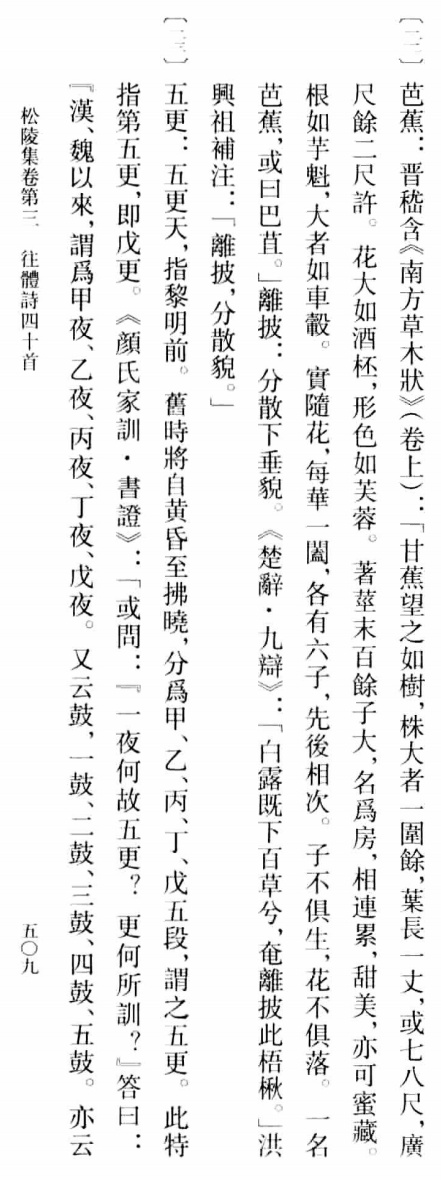 〔二二〕芭蕉：晋嵇含《南方草木狀》（卷上）：「甘蕉望之如樹，株大者一圍餘，葉長一丈，或七八尺，廣
尺餘二尺許。花大如酒杯，形色如芙蓉。著莖末百餘子大，名爲房，相連累，甜美，亦可蜜藏。
根如芋魁，大者如車轂。實隨花，每華一闔，各有六子，先後相次。子不俱生，花不俱落。一名
芭蕉，或曰巴苴。」離披：分散下垂貌。《楚辭·九辯》：「白露既下百草兮，奄離披此梧楸。」洪
興祖補注：「離披，分散貌。」
〔二三〕五更：五更天，指黎明前。舊時將自黄昏至拂曉，分爲甲、乙、丙、丁、戊五段，謂之五更。此特
指第五更，即戊更。《顔氏家訓·書證》：「或問：『一夜何故五更？更何所訓？』答曰：
『漢、魏以來，謂爲甲夜、乙夜、丙夜、丁夜、戊夜。又云鼓，一鼓、二鼓、三鼓、四鼓、五鼓。亦云
松陵集卷第三　往體詩四十首
五〇九